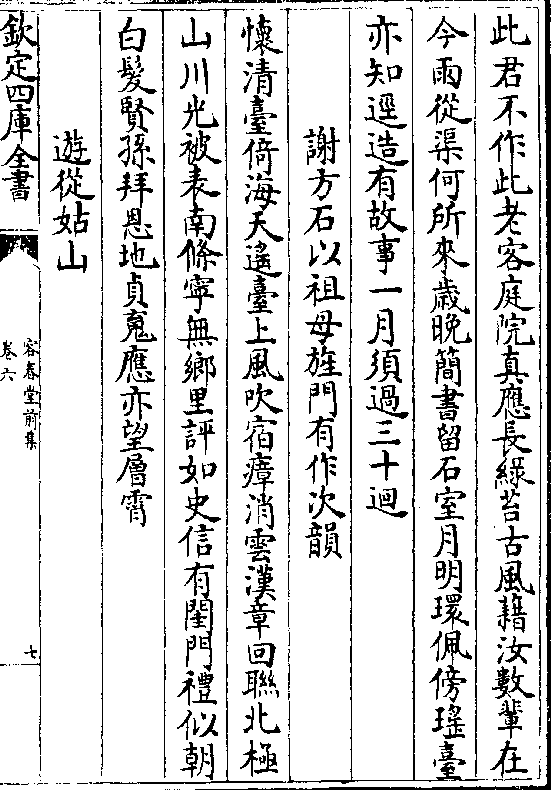 此君不作此老客庭院真應長綠苔古風賴汝數輩在
今雨從渠何所來歲晚簡書留石室月明環佩傍瑤臺
亦知逕造有故事一月須過三十迴
謝方石以祖母旌門有作次韻
懷清臺倚海天遙臺上風吹宿瘴消雲漢章回聯北極
山川光被表南條寧無鄉里評如史信有閨門禮似朝
白髮賢孫拜恩地貞䰟應亦望層霄
遊從姑山
欽定四庫全書
容春堂前集
卷六
七